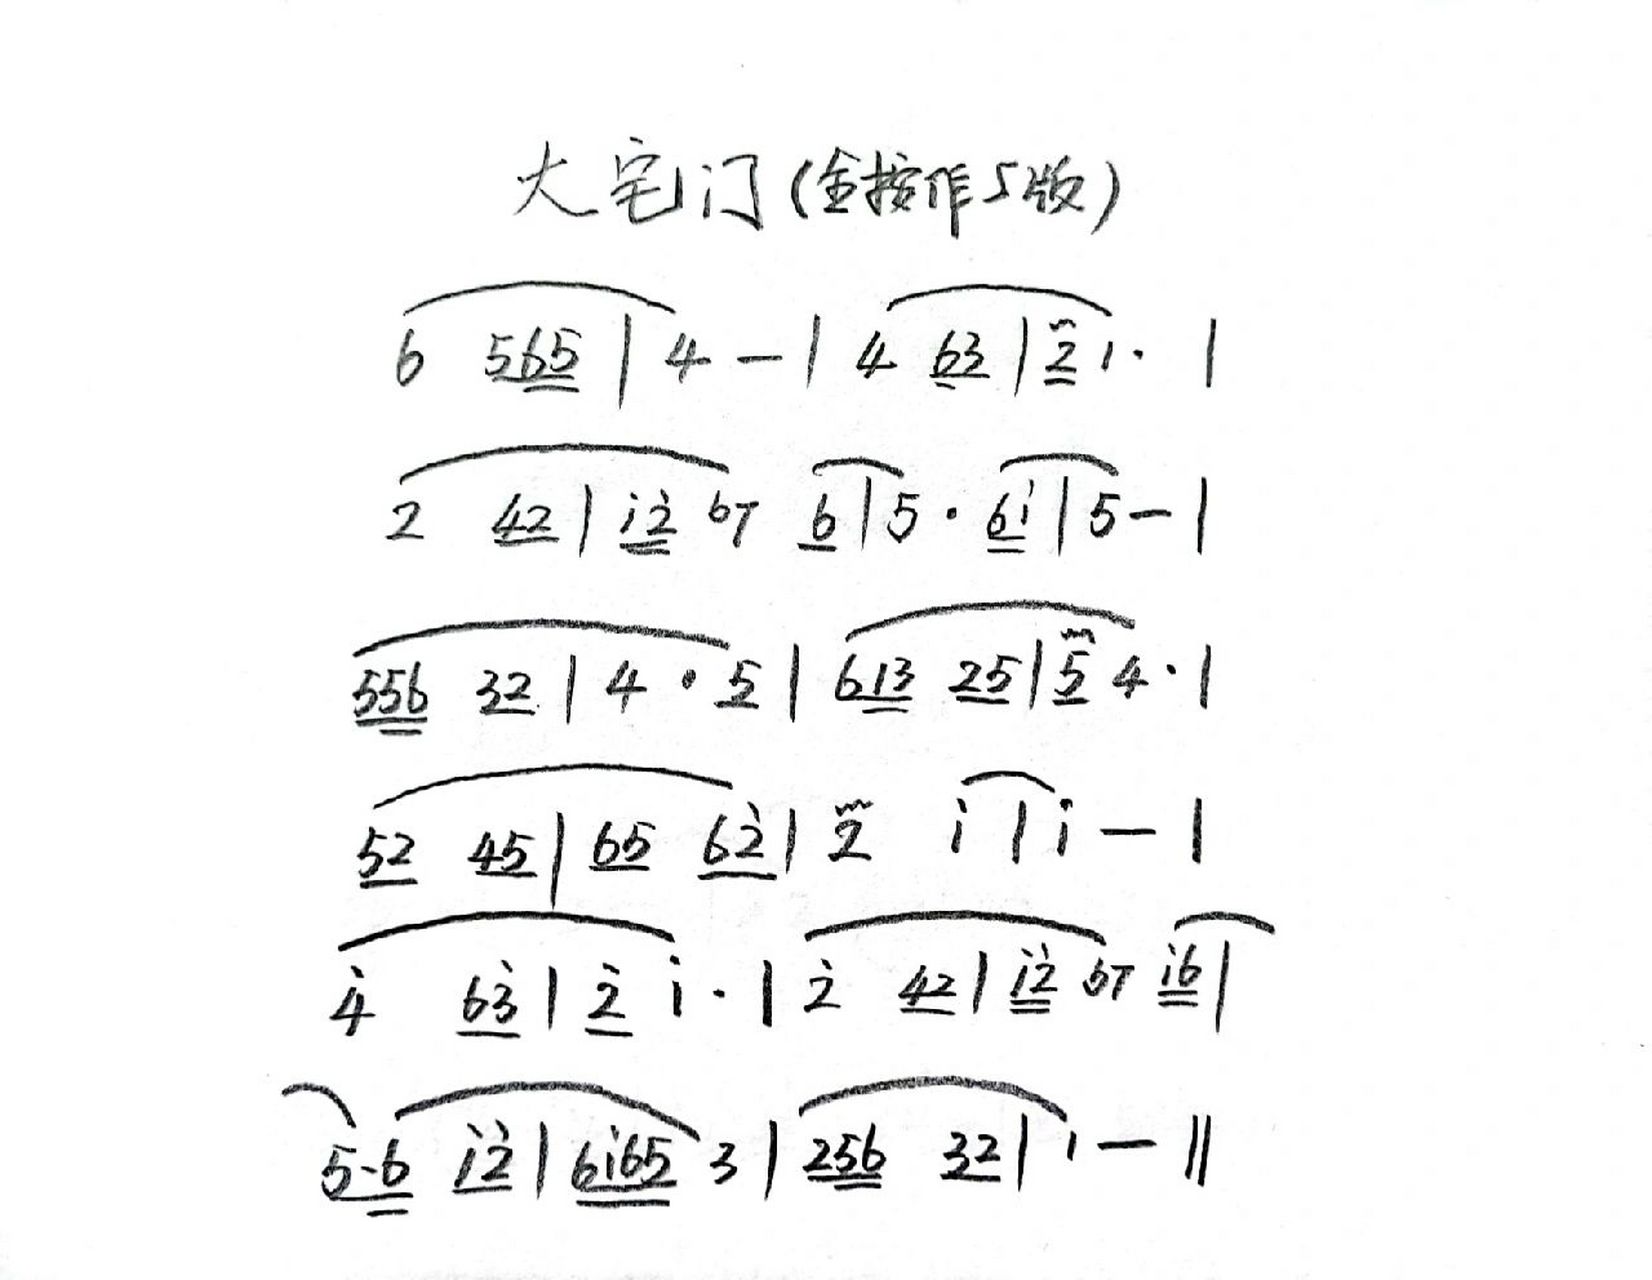 大宅门(全按作5版)
6 565 | 4 — | 4 63 | 2 1· |
2 42 | i̇2̇ b7 6 | 5 · 6i̇ | 5 — |
556 32 | 4 · 5 | 613 25 | 5 4 · |
52 45 | 65 62̇ | 2 i̇ | i̇ — |
4̇ 63̇ | 2̇ i̇ · | 2̇ 42 | i̇2̇ b7 i̇6 |
5·6 i̇2̇ | 6i̇65 3 | 256 32 | 1 — ‖